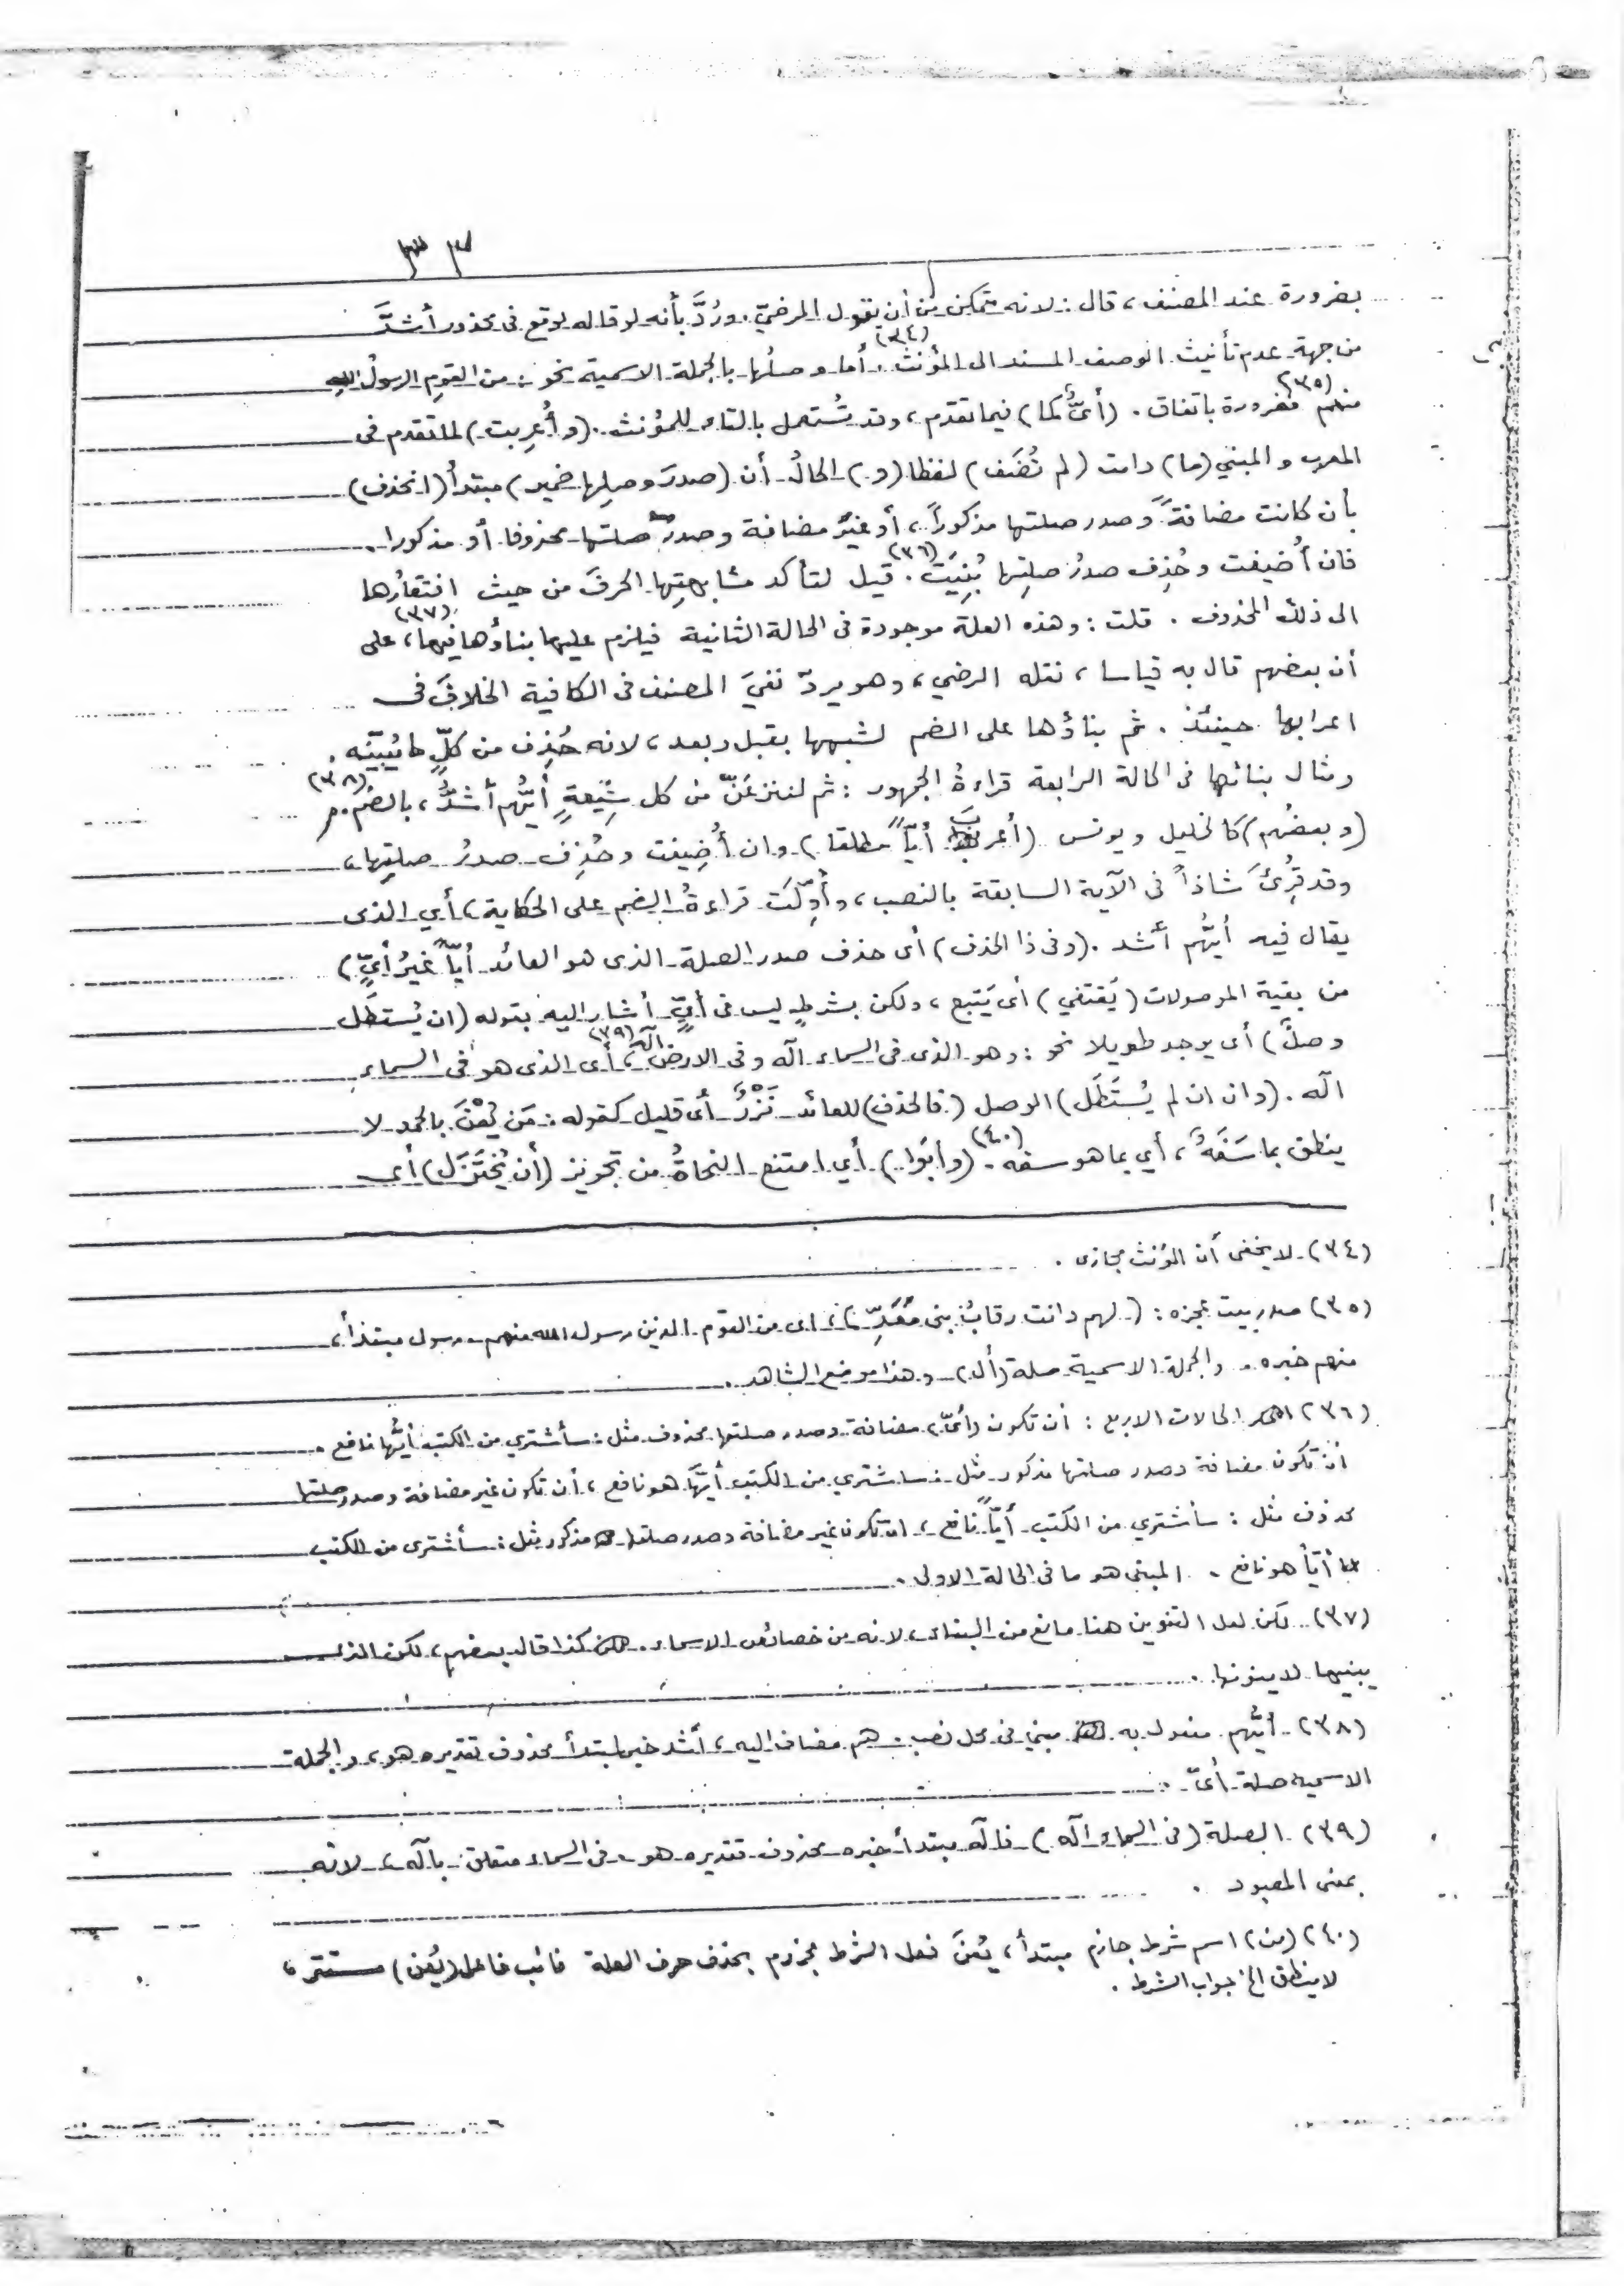 ٣٣
بضرورة عند المصنف، قال: لانه متمكن من أن يقول المرضيّ. ورُدَّ بأنه لو قاله لوقع فى محذور أشدَّ
من جهة عدم تأنيث الوصف المسند الى المؤنث (٣٤). أما وصلُها بالجملة الاسمية نحو: من القومِ الرسولُ اللهِ
منهم (٣٥) فضرورة باتفاق. (أىُّ كما) فيما تقدم، وقد تُستعمل بالتاء للمؤنث. (وأُعرِبت) لما تقدم فى
المعرب والمبني (ما) دامت (لم تُضَف) لفظا (و) الحالُ أن (صدرَ وصلِها ضمير) مبتدأُ (انحذف)
بأن كانت مضافةً وصدر صلتها مذكوراً، أو غيرَ مضافة وصدرُ صلتها محذوفا أو مذكورا.
فان أُضيفت وحُذِف صدرُ صلتِها بُنِيَت (٣٦). قيل لتأكد مشابهتِها الحرفَ من حيث افتقارُها
الى ذلك المحذوف. قلت: وهذه العلة موجودة فى الحالة الثانية فيلزم عليها بناؤها فيها (٣٧)، على
أن بعضهم قال به قياسا، نقله الرضي، وهو يردّ نفيَ المصنف فى الكافية الخلافَ فى
اعرابها حينئذ. ثم بناؤها على الضم لشبهها بقبل وبعد، لانه حُذِف من كلٍّ ما يُبيّنه.
ومثال بنائها فى الحالة الرابعة قراءةُ الجمهور: ثم لننزعَنّ من كل شِيعةٍ أيُّهم أشدُّ، بالضم (٣٨).
(وبعضُهم) كالخليل ويونس (أعربَ أيّاً مطلقا) وان أُضِيفت وحُذِف صدرُ صلتِها،
وقد قُرِئَ شاذاً فى الآية السابقة بالنصب، وأُوِّلَت قراءةُ الضم على الحكاية، أي الذى
يقال فيه أيُّهم أشد. (وفى ذا الحذف) أى حذف صدر الصلة الذى هو العائد (أيّاً غيرُ أيٍّ)
من بقية الموصولات (يَقتفي) أى يَتبع، ولكن بشرطٍ ليس فى أيٍّ أشار اليه بقوله (ان يُستطَل
وصلٌ) أى يوجد طويلا نحو: وهو الذى فى السماء الٓه وفى الارض الٓه (٣٩)، أى الذى هو فى السماء
الٓه. (وان لم يُستَطَل) الوصل (فالحذف) للعائد نَزْرٌ أى قليل كقوله: مَن يُعْنَ بالحمد لا
ينطق بما سَفَهٌ، أي بما هو سفه (٤٠). (وأبَوا) أي امتنع النحاةُ من تجويز (أن يُختَزَل) أى
(٣٤) لا يخفى أن المؤنث مجازى.
(٣٥) صدر بيت عجزه: (لهم دانت رقابُ بنى مَعَدِّ)، اى من القوم الذين رسول الله منهم. رسول مبتدأ،
منهم خبره. والجملة الاسمية صلة (أل) وهذا موضع الشاهد.
(٣٦) الحالات الاربع: أن تكون (أىّ) مضافة وصدر صلتها محذوف مثل: سأشتري من الكتب أيُّها نافع.
ان تكون مضافة وصدر صلتها مذكور مثل: ساشتري من الكتب أيَّها هو نافع، أن تكون غير مضافة وصدر صلتها
محذوف مثل: سأشتري من الكتب أيّاً نافع، ان تكون غير مضافة وصدر صلتها مذكور مثل: سأشترى من الكتب
أيّاً هو نافع. المبنى هو ما فى الحالة الاولى.
(٣٧) لكن لعل التنوين هنا مانع من البناء، لانه من خصائص الاسماء. كذا قال بعضهم، لكن الذى
يبنيها لا ينونها.
(٣٨) أيُّهم مفعول به مبني فى محل نصب. هم مضاف اليه، أشد خبر لمبتدأ محذوف تقديره هو، والجملة
الاسمية صلة أىّ.
(٣٩) الصلة (فى السماء الٓه) فالٓه مبتدأ خبره محذوف تقديره هو. فى السماء متعلق بالٓه، لانه
بمعنى المعبود.
(٤٠) (من) اسم شرط جازم مبتدأ، يُعْنَ فعل الشرط مجزوم بحذف حرف العلة نائب فاعل (يُعن) مستتر،
لا ينطق الخ جواب الشرط.